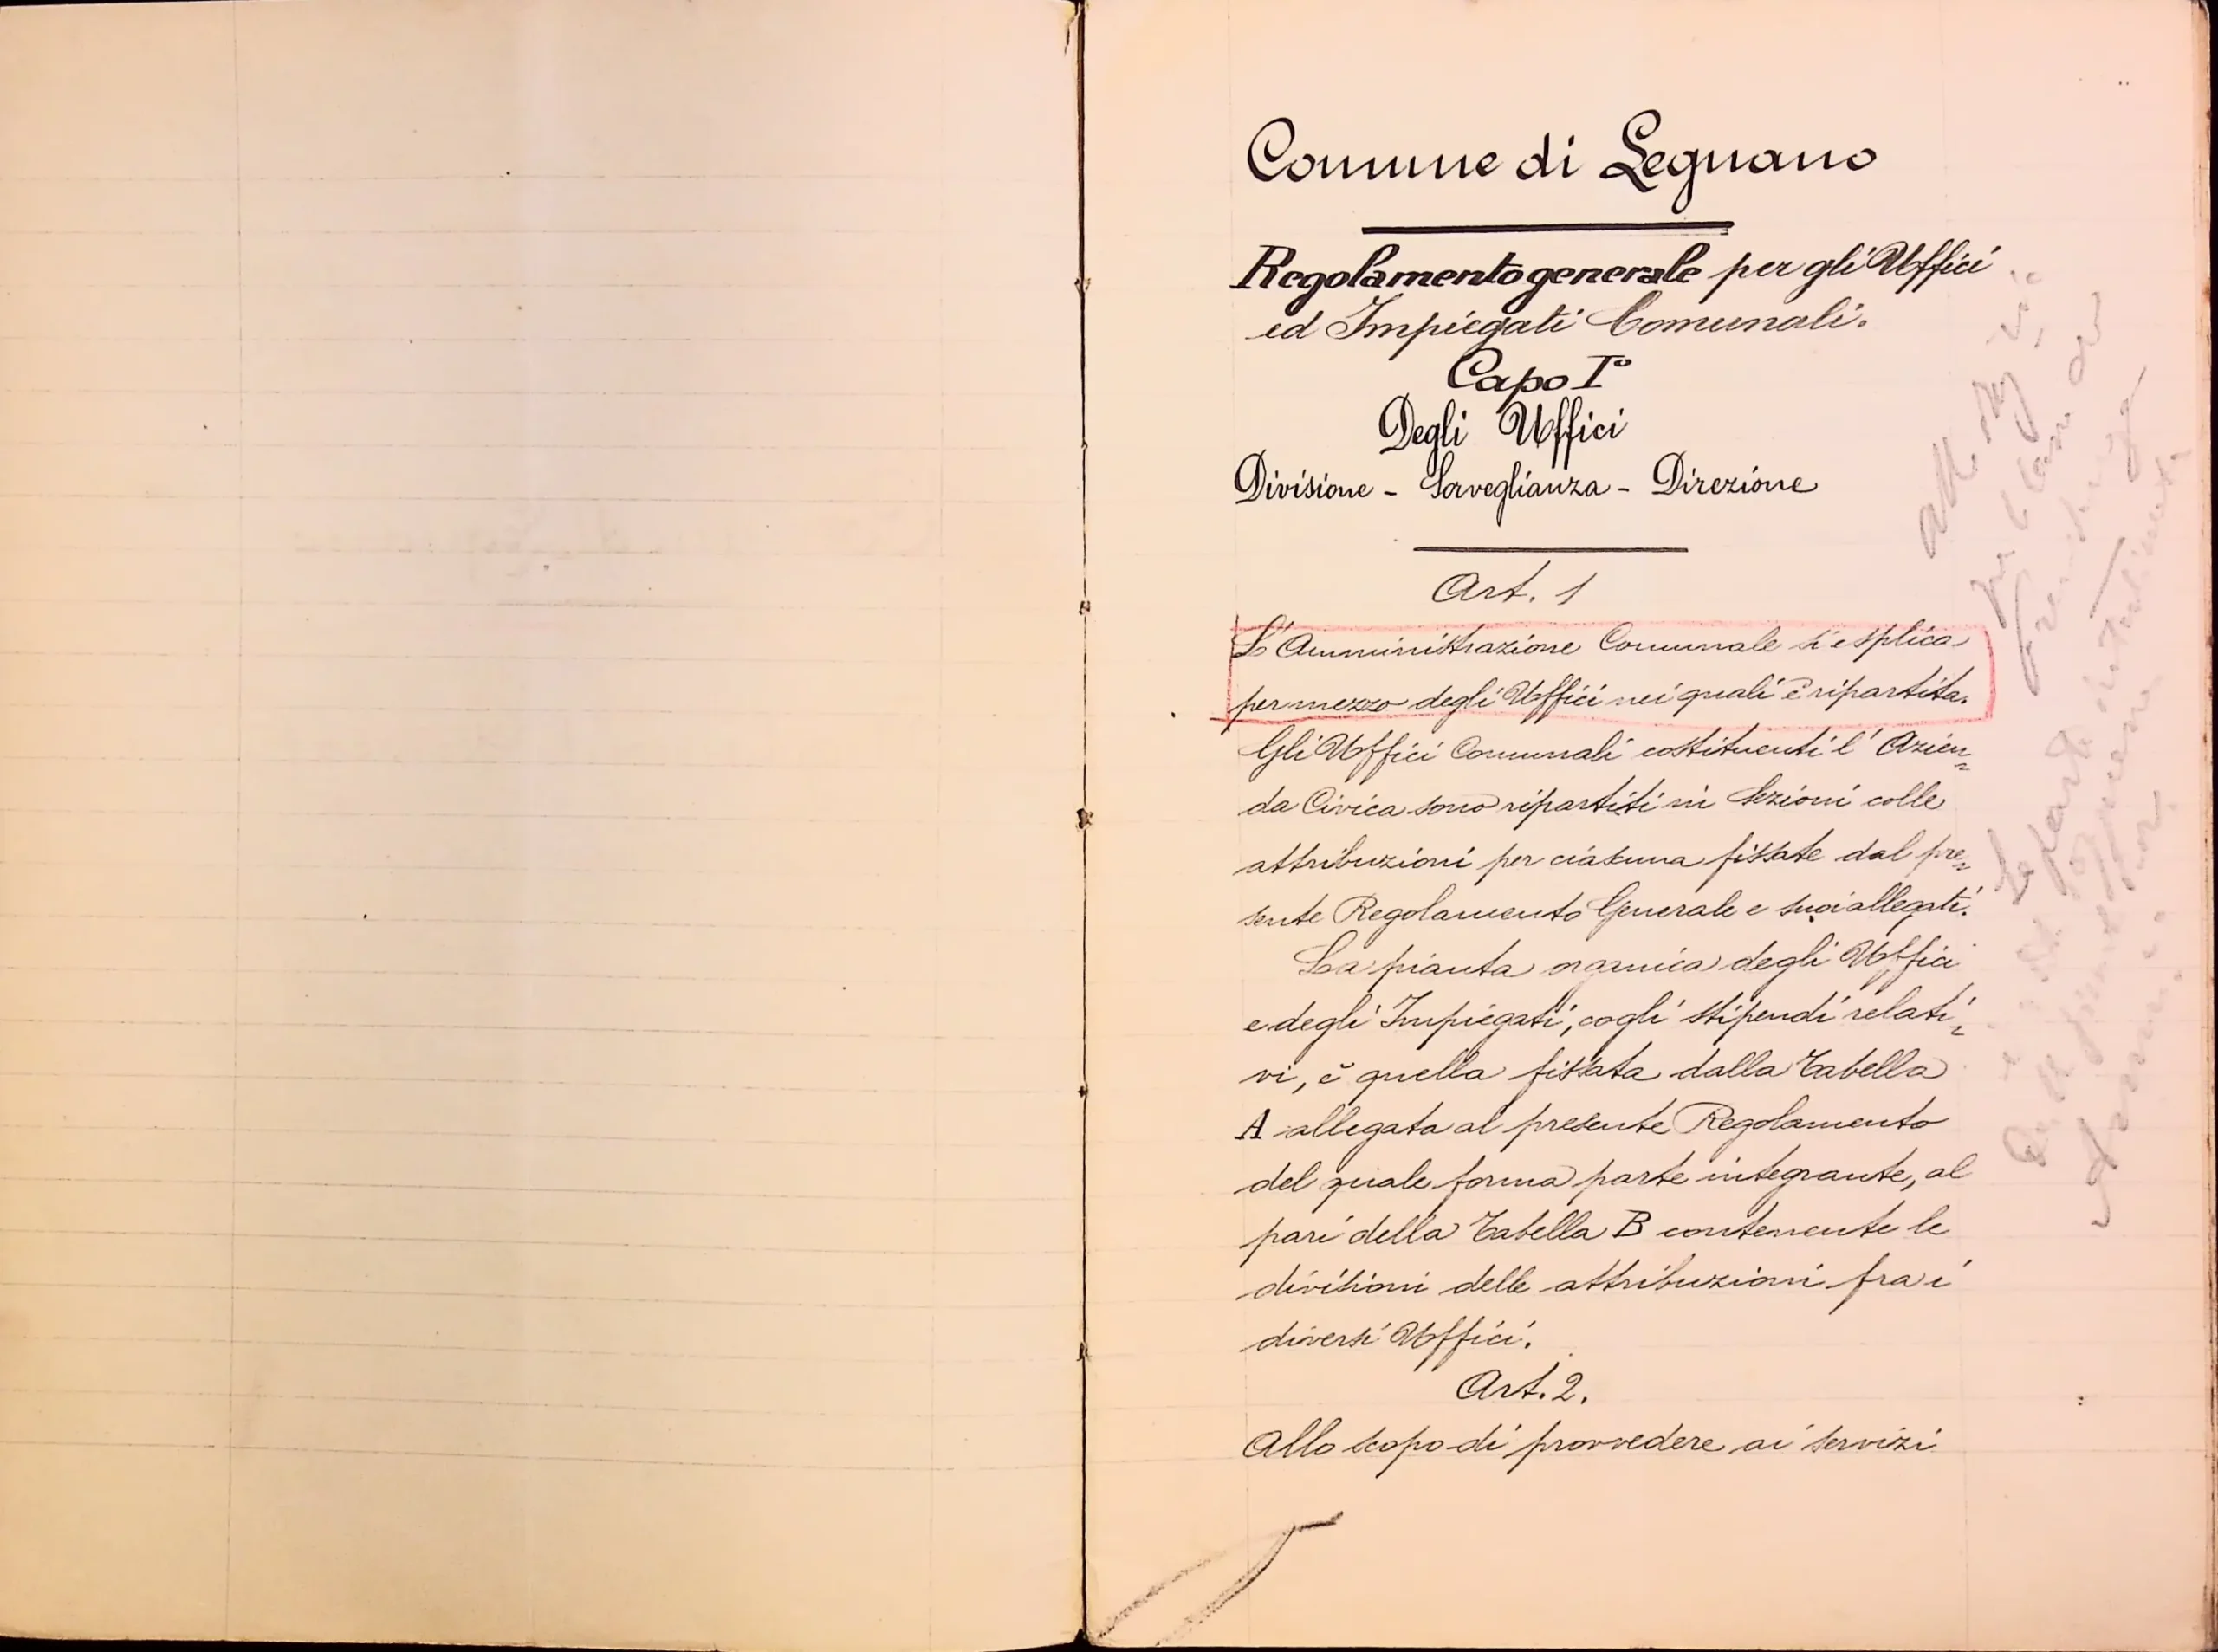 Comune di Legnano
Regolamento generale per gli Uffici
ed Impiegati Comunali.
Capo I°
Degli Uffici
Divisione - Sorveglianza - Direzione
Art. 1
L'Amministrazione Comunale si esplica
per mezzo degli Uffici nei quali è ripartita.
Gli Uffici Comunali costituenti l'Azien=
da Civica sono ripartiti in Sezioni colle
attribuzioni per ciascuna fissate dal pre=
sente Regolamento Generale e suoi allegati.
La pianta organica degli Uffici
e degli Impiegati, cogli stipendi relati=
vi, è quella fissata dalla Tabella
A allegata al presente Regolamento
del quale forma parte integrante, al
pari della Tabella B contenente le
divisioni delle attribuzioni fra i
diversi Uffici.
Art. 2.
Allo scopo di provvedere ai servizi